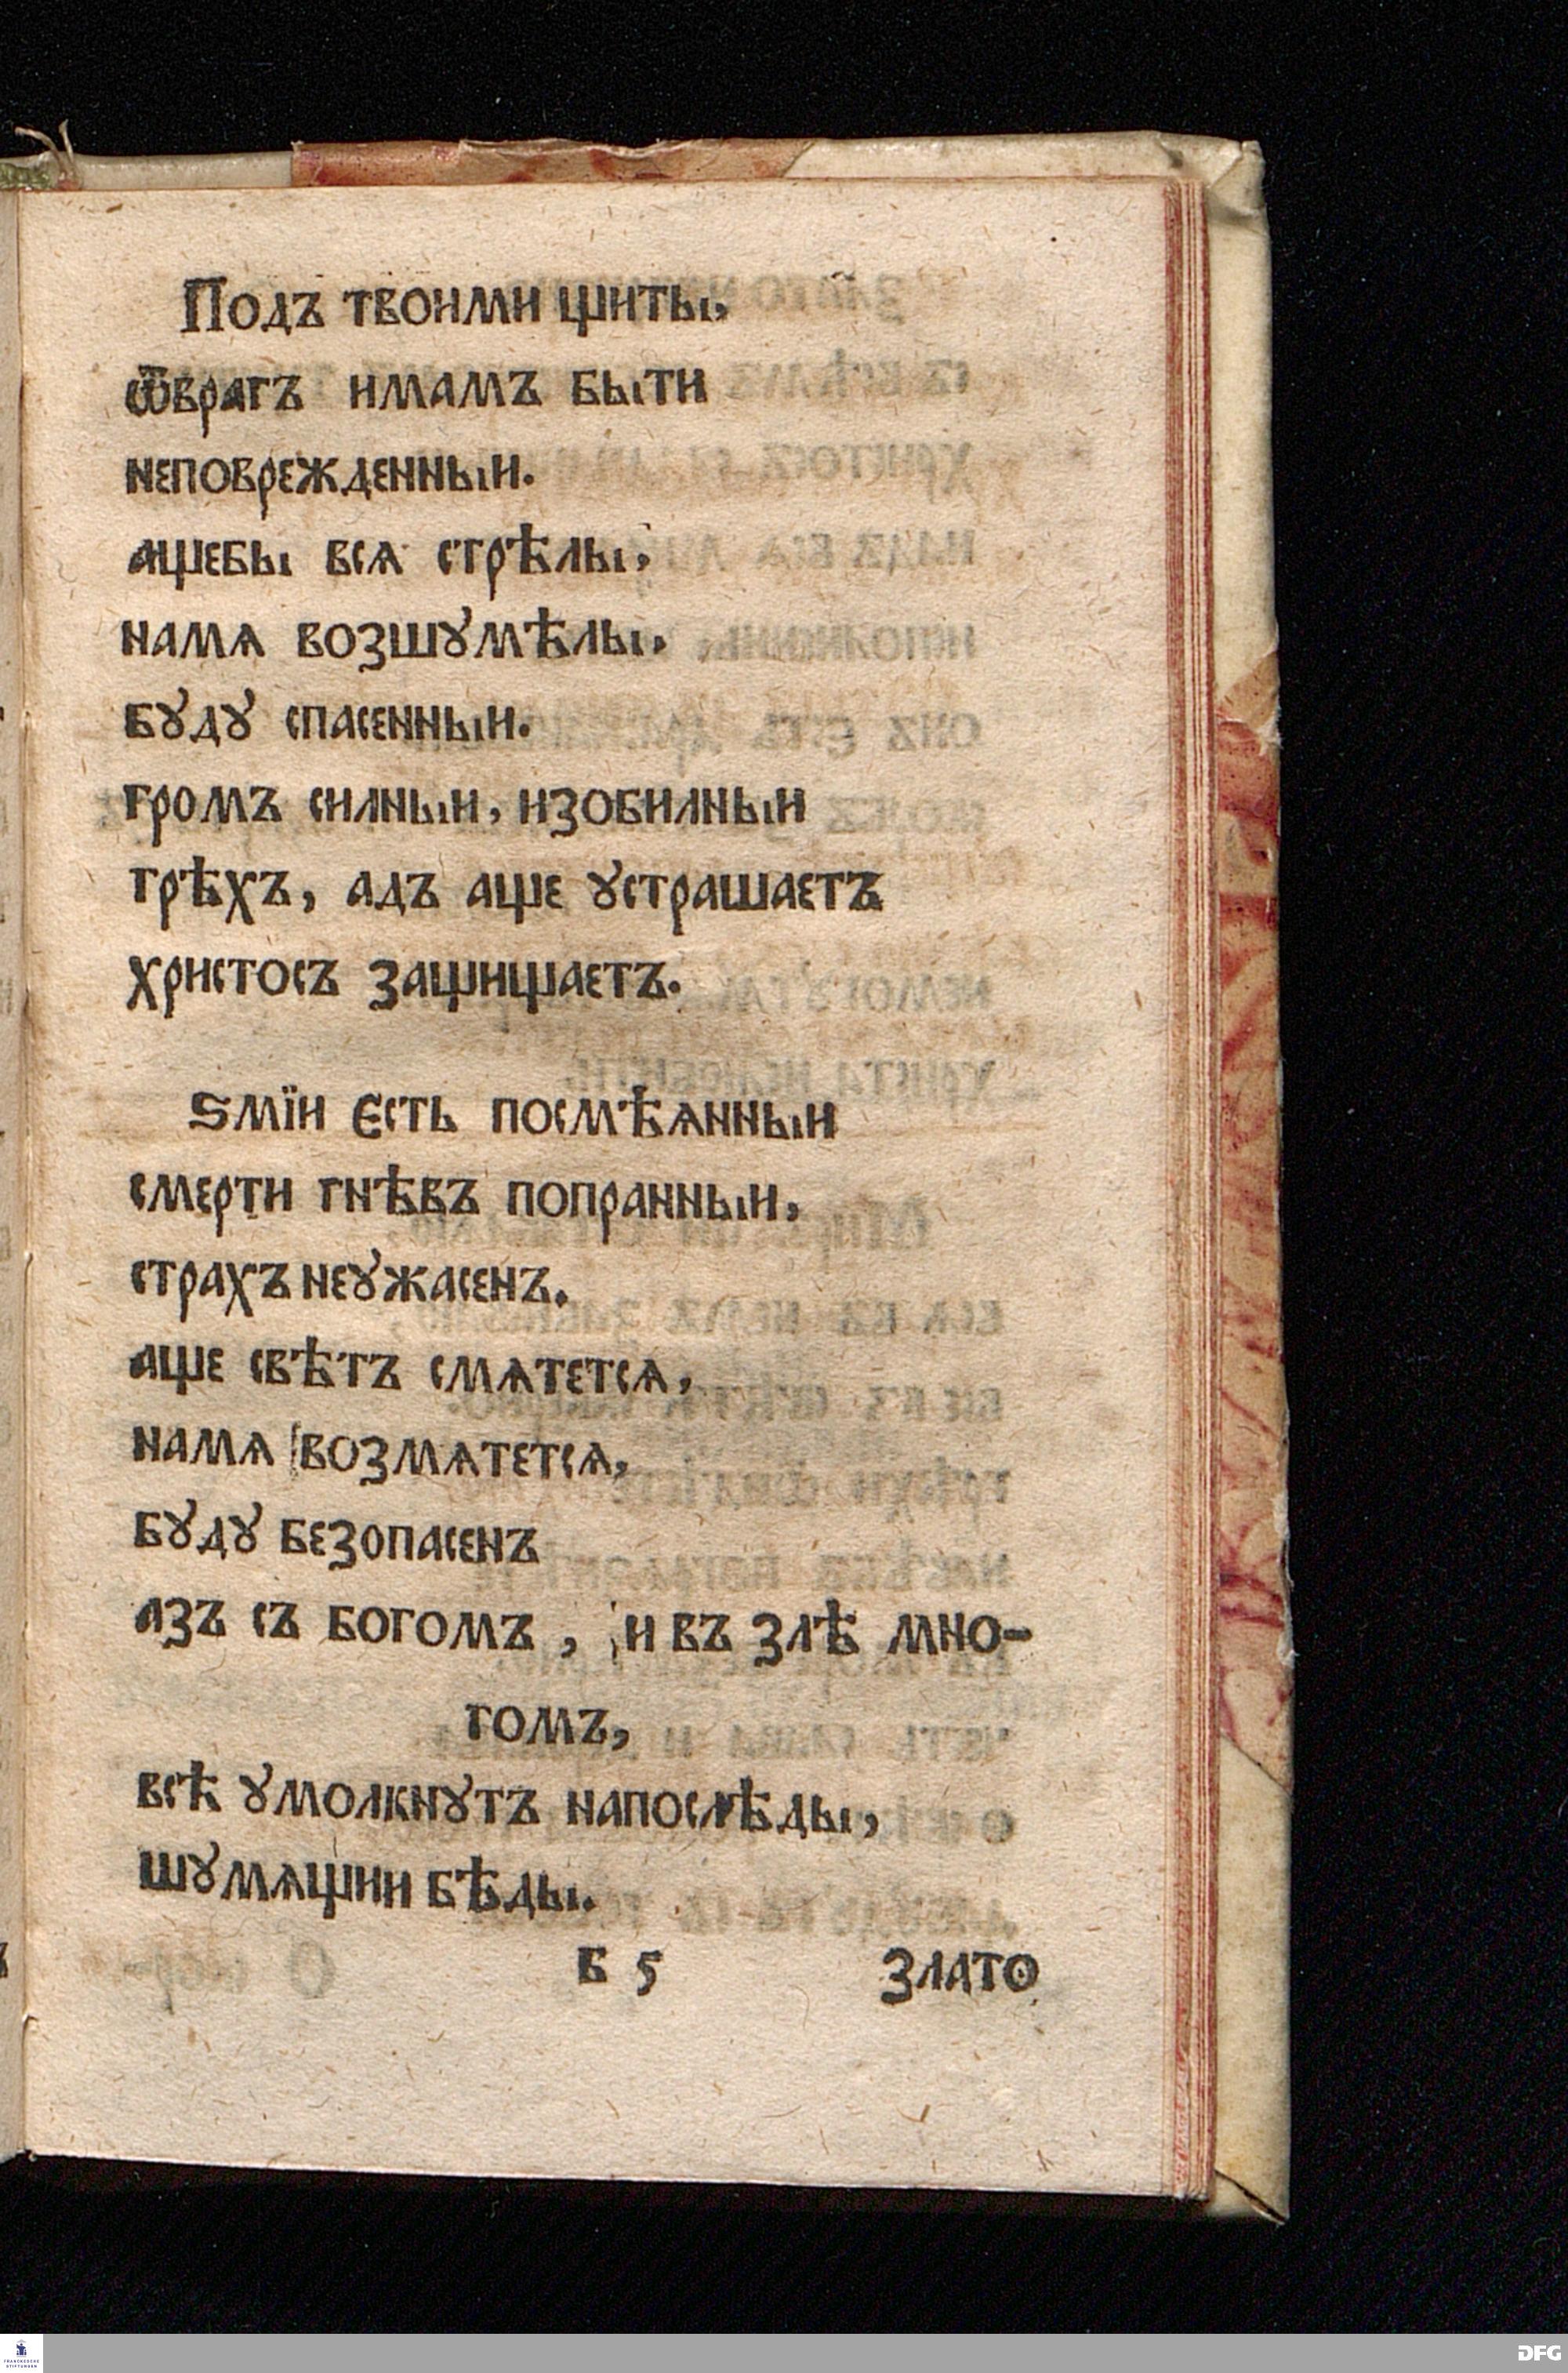 Подъ твоими щиты,
ѿврагъ имамъ быти
неповрежденный.
ащебы вся стрѣлы,
намѧ возшꙋмѣлы,
бꙋдꙋ спасенный.
громъ силный, изобилный
грѣхъ, адъ аще ꙋстрашаетъ
христосъ защищаетъ.
Ѕмїи Єсть посмѣѧнный
смерти гнѣвъ попранный,
страхъ неꙋжасенъ.
аще свѣтъ смѧтетсѧ,
намѧ возмѧтетсѧ,
бꙋдꙋ безопасенъ
азъ съ богомъ, и въ злѣ мно-
гомъ,
всѣ ꙋмолкнꙋтъ напослѣды,
шꙋмѧщии бѣды.
Б 5 злато
FRANCKESCHE
STIFTUNGEN
DFG